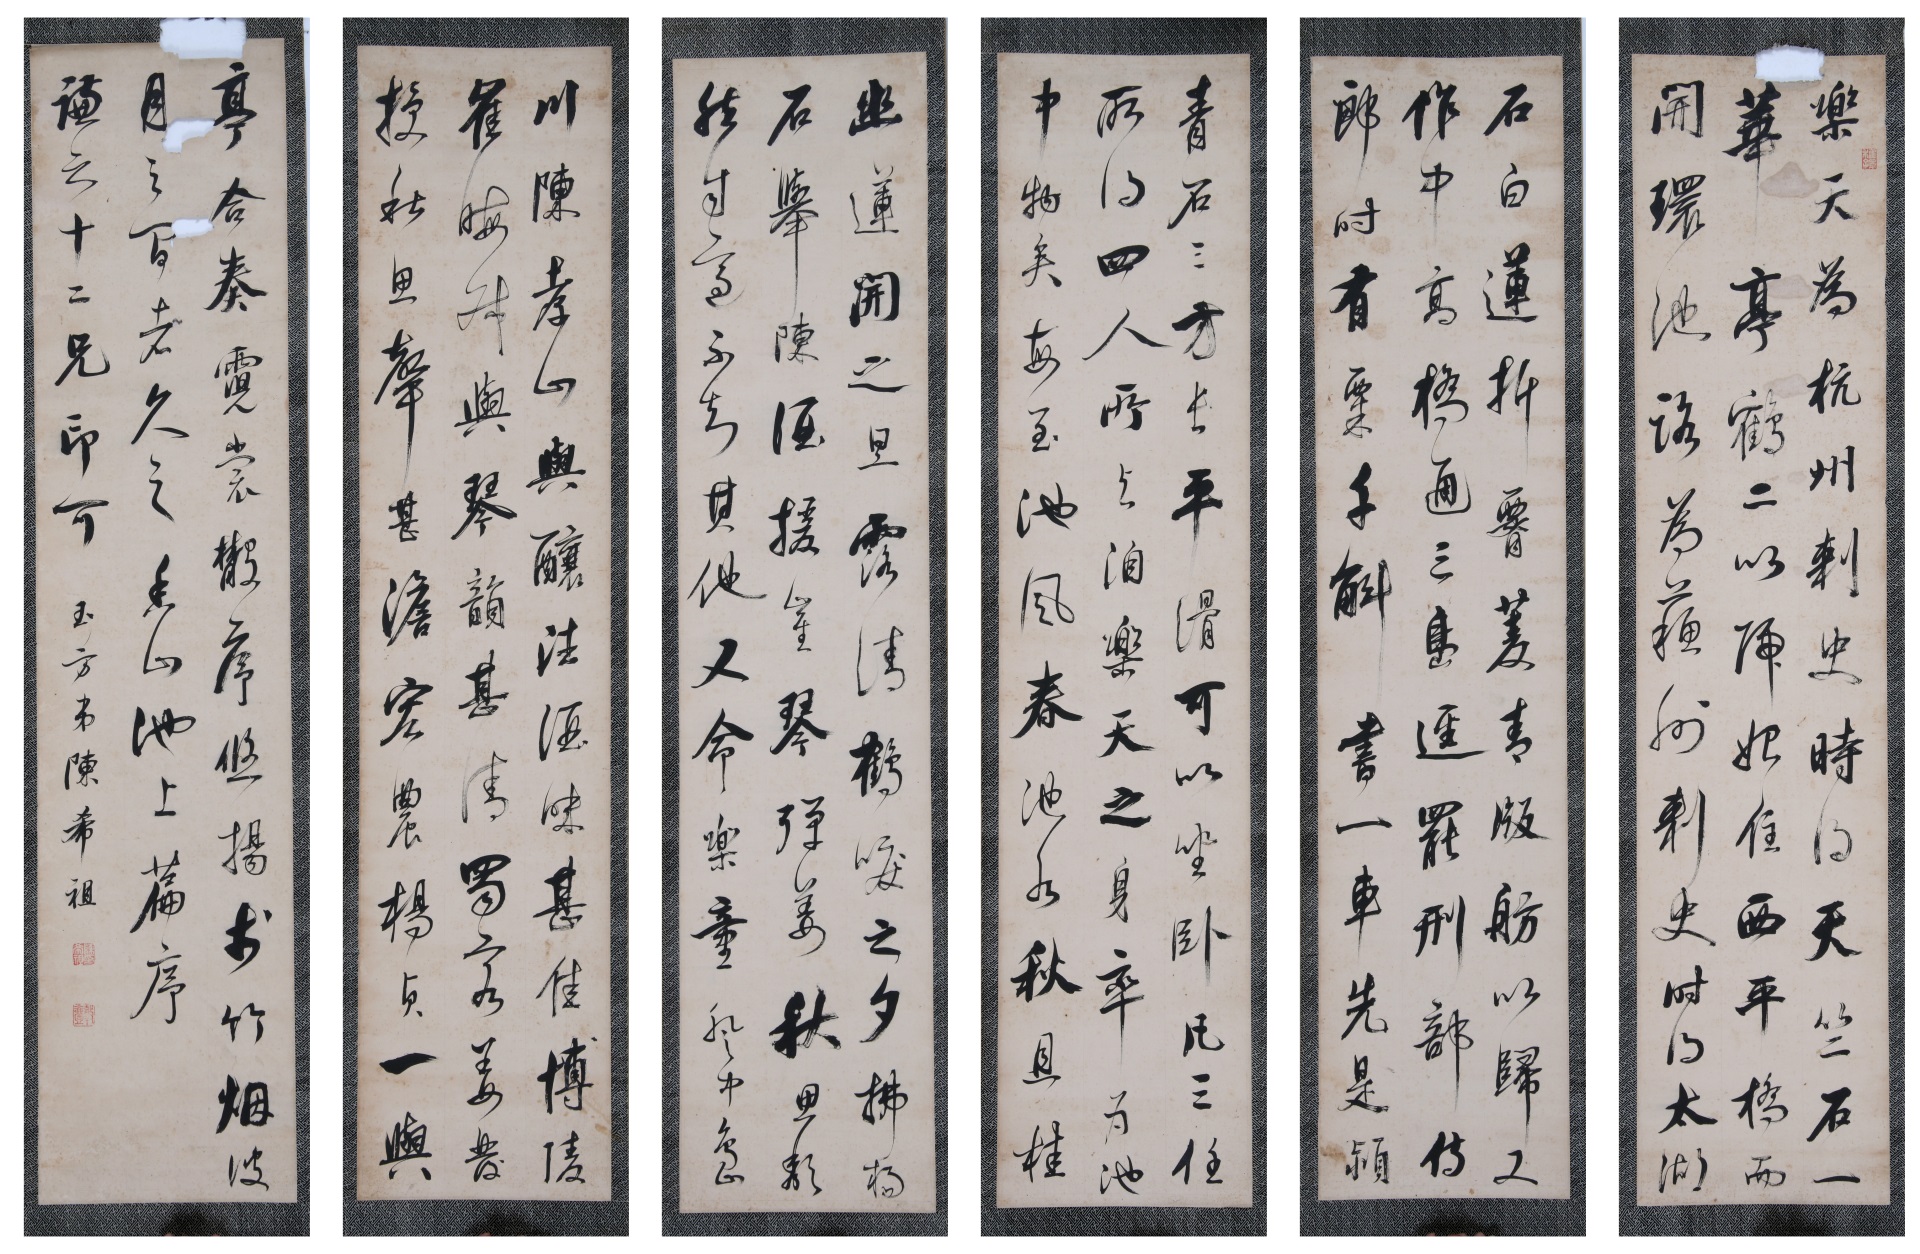 樂天為杭州刺史時得天竺石一
華亭鶴二以歸始住西平橋而
開環池路為蘇州刺史時得太湖
石白蓮折腰菱青版舫以歸又
作中高橋通三島逕罷刑部侍
郎時有粟千斛書一車先是潁
青石三方長平滑可以坐卧凡三任
所得四人所與洎樂天之身率為池
中物矣每至池風春池水秋且桂
幽蓮開之旦露清鶴唳之夕拂楊
石舉陳酒援崔琴彈姜秋思頹
然自適不知其他又命樂童登中島
川陳孝山與釀法酒味甚佳博陵
崔晦叔與琴韻甚清蜀客姜發
授秋思聲甚澹宏農楊貞一與
亭合奏霓裳散序悠揚於竹烟波
月之間者久之 香山池上篇序
謙六十二兄印可 玉方弟陳希祖